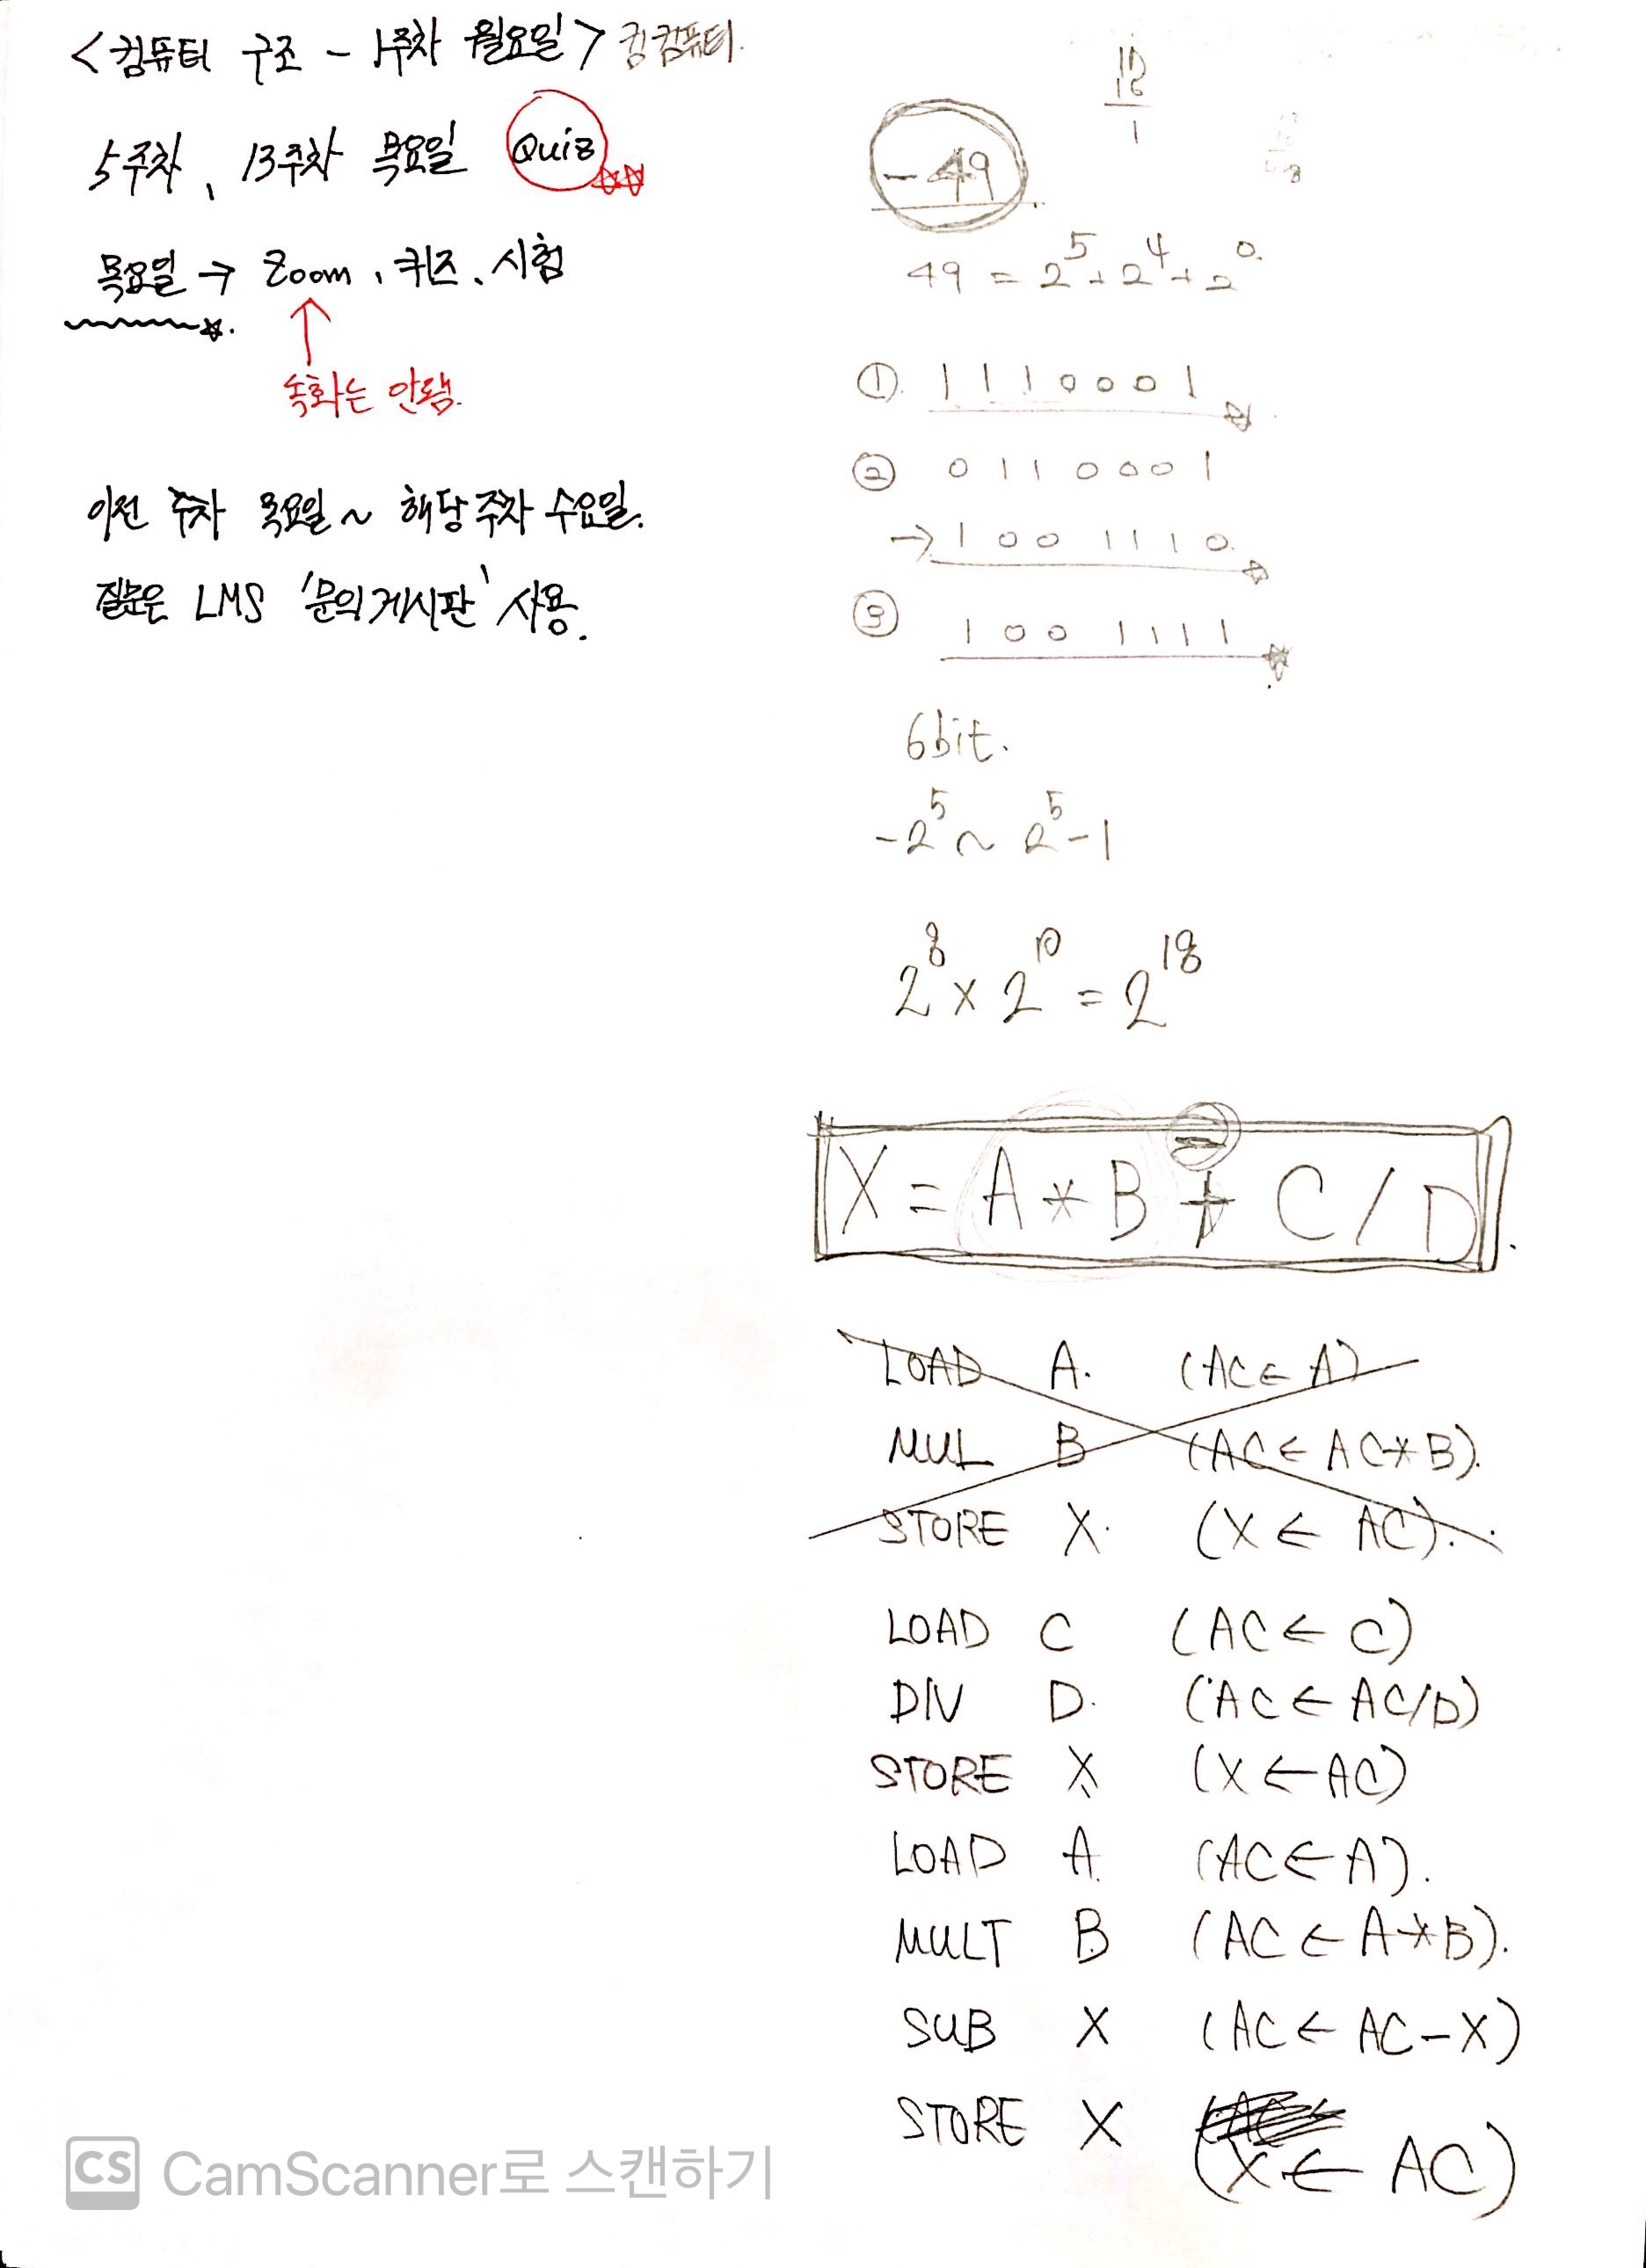 <컴퓨터 구조 - 1주차 월요일> 컴퓨터.
5주차, 13주차 목요일 Quiz
목요일 → Zoom, 퀴즈, 시험
녹화는 안됨.
이전 주차 목요일 ~ 해당 주차 수요일.
질문은 LMS '문의게시판' 사용.
16
1
-49
49 = 2⁵ + 2⁴ + 2⁰.
① 1 1 1 0 0 0 1
② 0 1 1 0 0 0 1
→ 1 0 0 1 1 1 0.
③ 1 0 0 1 1 1 1
6bit.
-2⁵ ~ 2⁵-1
2⁸ × 2¹⁰ = 2¹⁸
−
X = A * B + C / D.
LOAD A. (AC ← A)
MUL B (AC ← AC * B).
STORE X. (X ← AC).
LOAD C (AC ← C)
DIV D. (AC ← AC/D)
STORE X (X ← AC)
LOAD A (AC ← A).
MULT B (AC ← A * B).
SUB X (AC ← AC - X)
STORE X (X ← AC)
CS CamScanner로 스캔하기